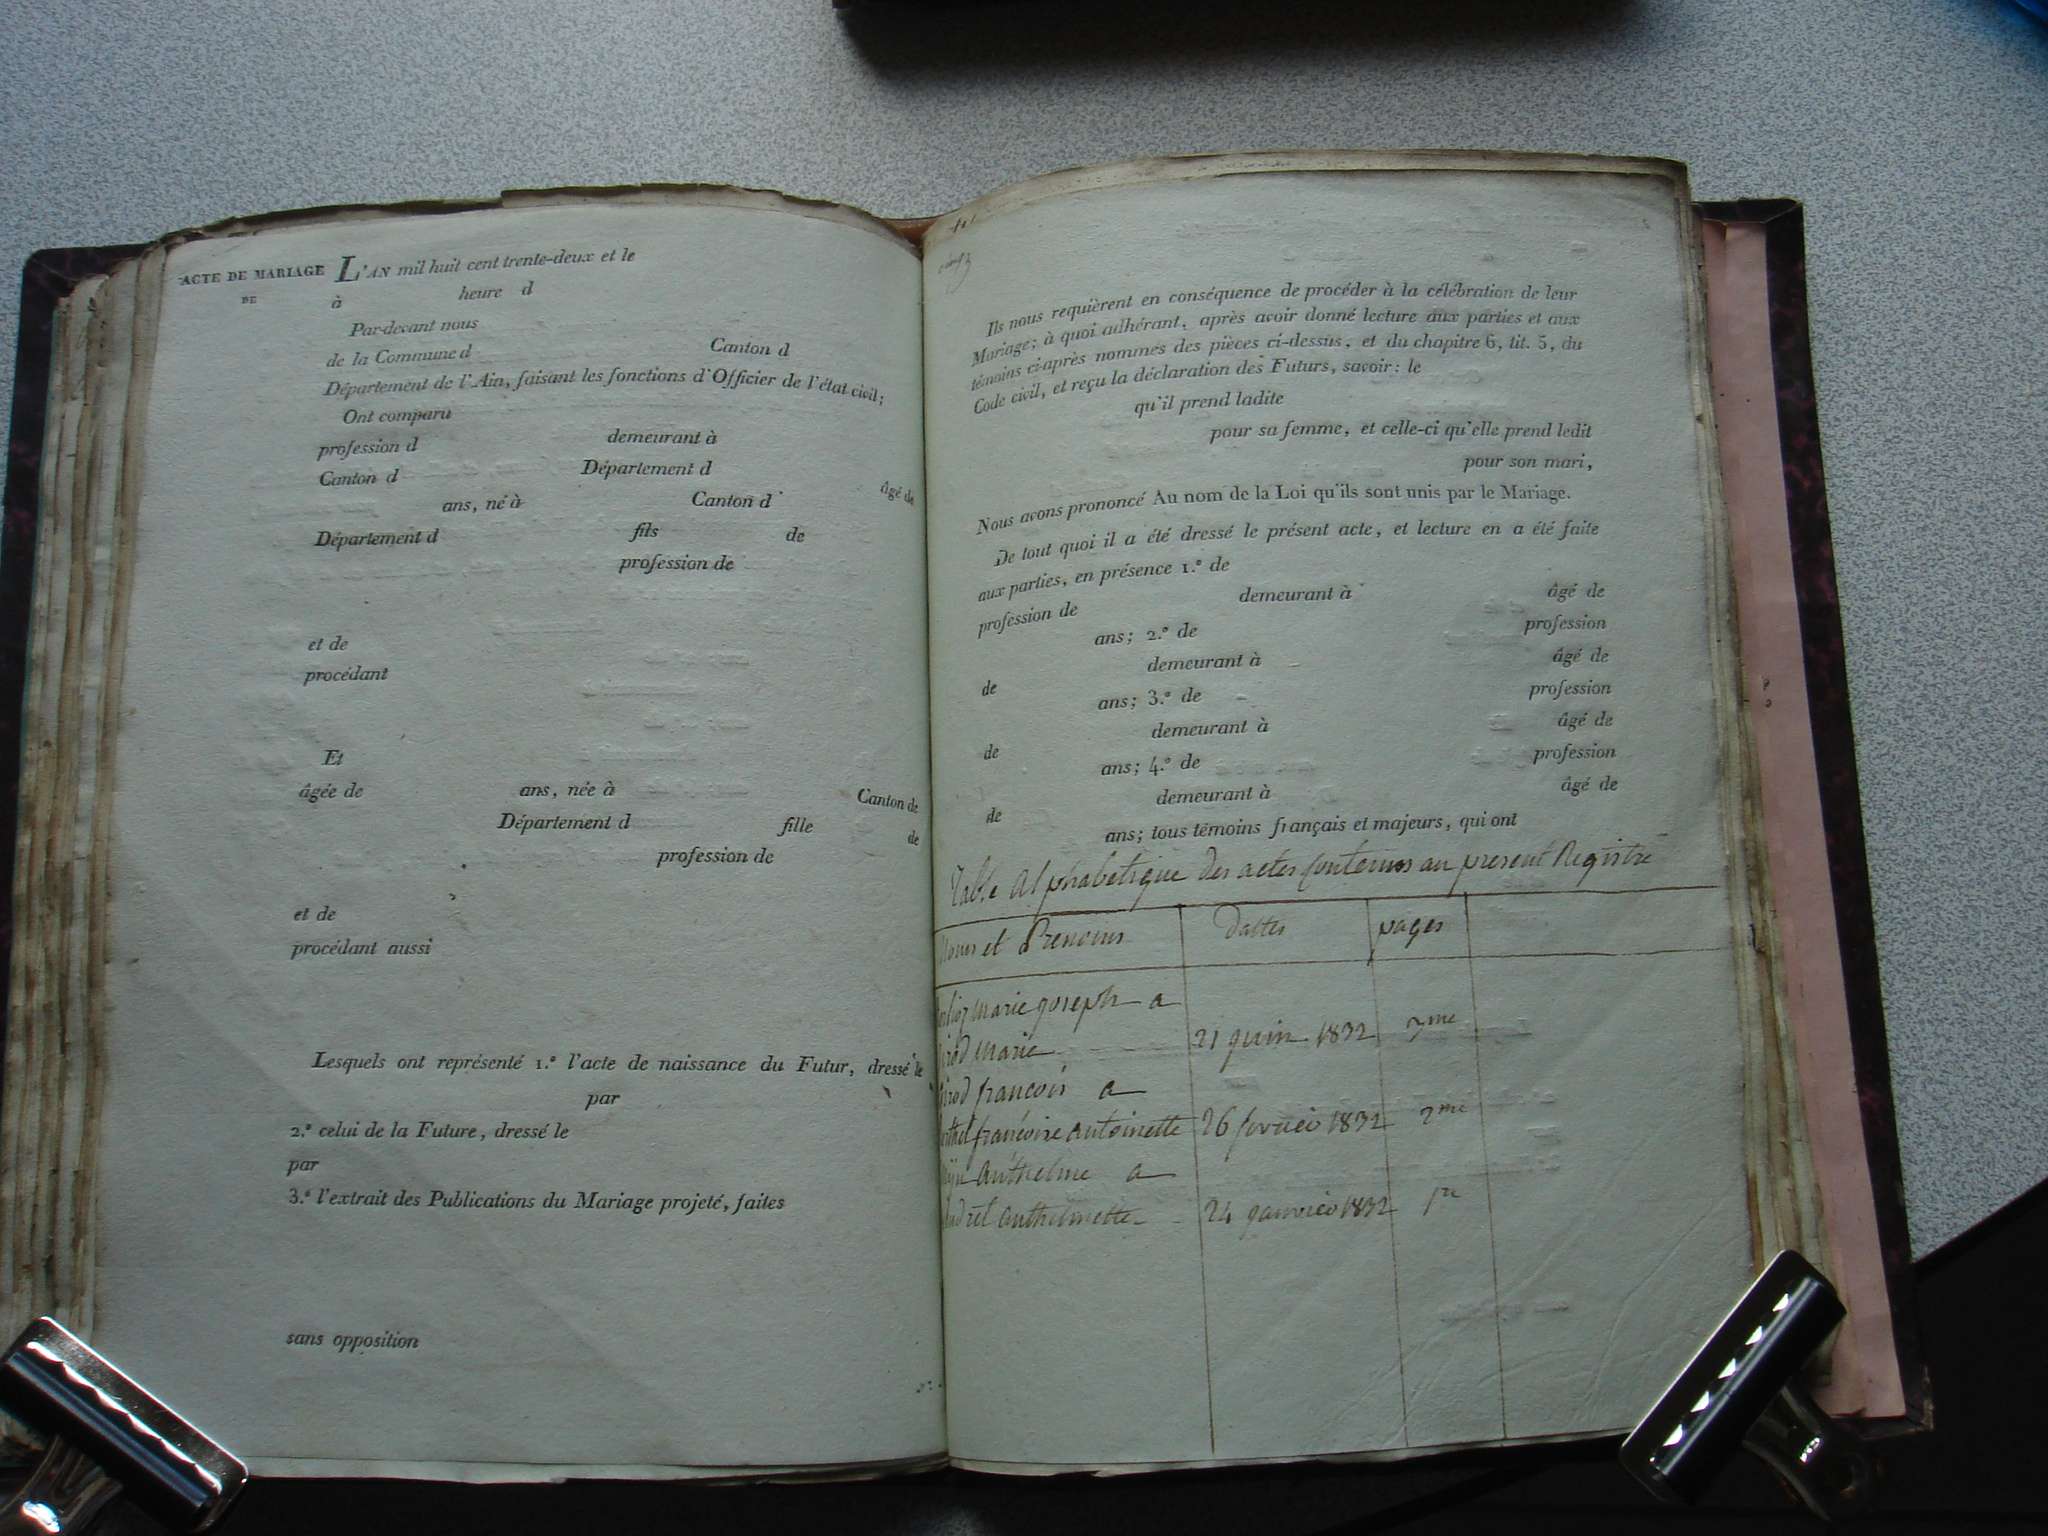 ACTE DE MARIAGE L'AN mil huit cent trente-deux et le
DE à heure d
Par-devant nous
de la Commune d Canton d
Département de l'Ain, faisant les fonctions d'Officier de l'état civil;
Ont comparu
profession d demeurant à
Canton d Département d
âgé de
ans, né à Canton d
Département d fils de
profession de
et de
procédant
Et
âgée de ans, née à Canton de
Département d fille de
profession de
et de
procédant aussi
Lesquels ont représenté 1.º l'acte de naissance du Futur, dressé le
par
2.º celui de la Future, dressé le
par
3.º l'extrait des Publications du Mariage projeté, faites
sans opposition
Ils nous requièrent en conséquence de procéder à la célébration de leur
Mariage; à quoi adhérant, après avoir donné lecture aux parties et aux
témoins ci-après nommés des pièces ci-dessus, et du chapitre 6, tit. 5, du
Code civil, et reçu la déclaration des Futurs, savoir: le
qu'il prend ladite
pour sa femme, et celle-ci qu'elle prend ledit
pour son mari,
Nous avons prononcé Au nom de la Loi qu'ils sont unis par le Mariage.
De tout quoi il a été dressé le présent acte, et lecture en a été faite
aux parties, en présence 1.º de
profession de demeurant à âgé de
ans; 2.º de profession
de demeurant à âgé de
ans; 3.º de profession
de demeurant à âgé de
ans; 4.º de profession
de demeurant à âgé de
ans; tous témoins français et majeurs, qui ont
Table Alphabetique des actes Contenus au present Registre
Noms et Prenoms dattes pages
Marie joseph a
Marie 21 juin 1832 3me
françois a
françoise antoinette 26 fevrier 1832 2me
Anthelme a
anthelmette 24 janvier 1832 1re